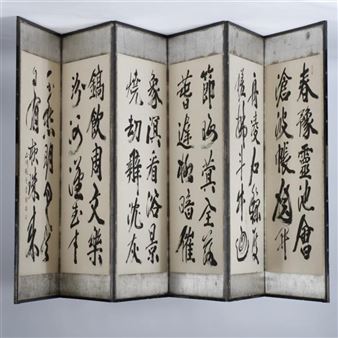 春豫靈池會
滄波帳殿開
舟凌石鯨度
槎拂斗牛迴
節晦蓂全落
春遲柳暗催
象溟看浴景
燒劫辨沈灰
鎬飲周文樂
汾歌漢武才
不愁明月盡
自有夜珠來